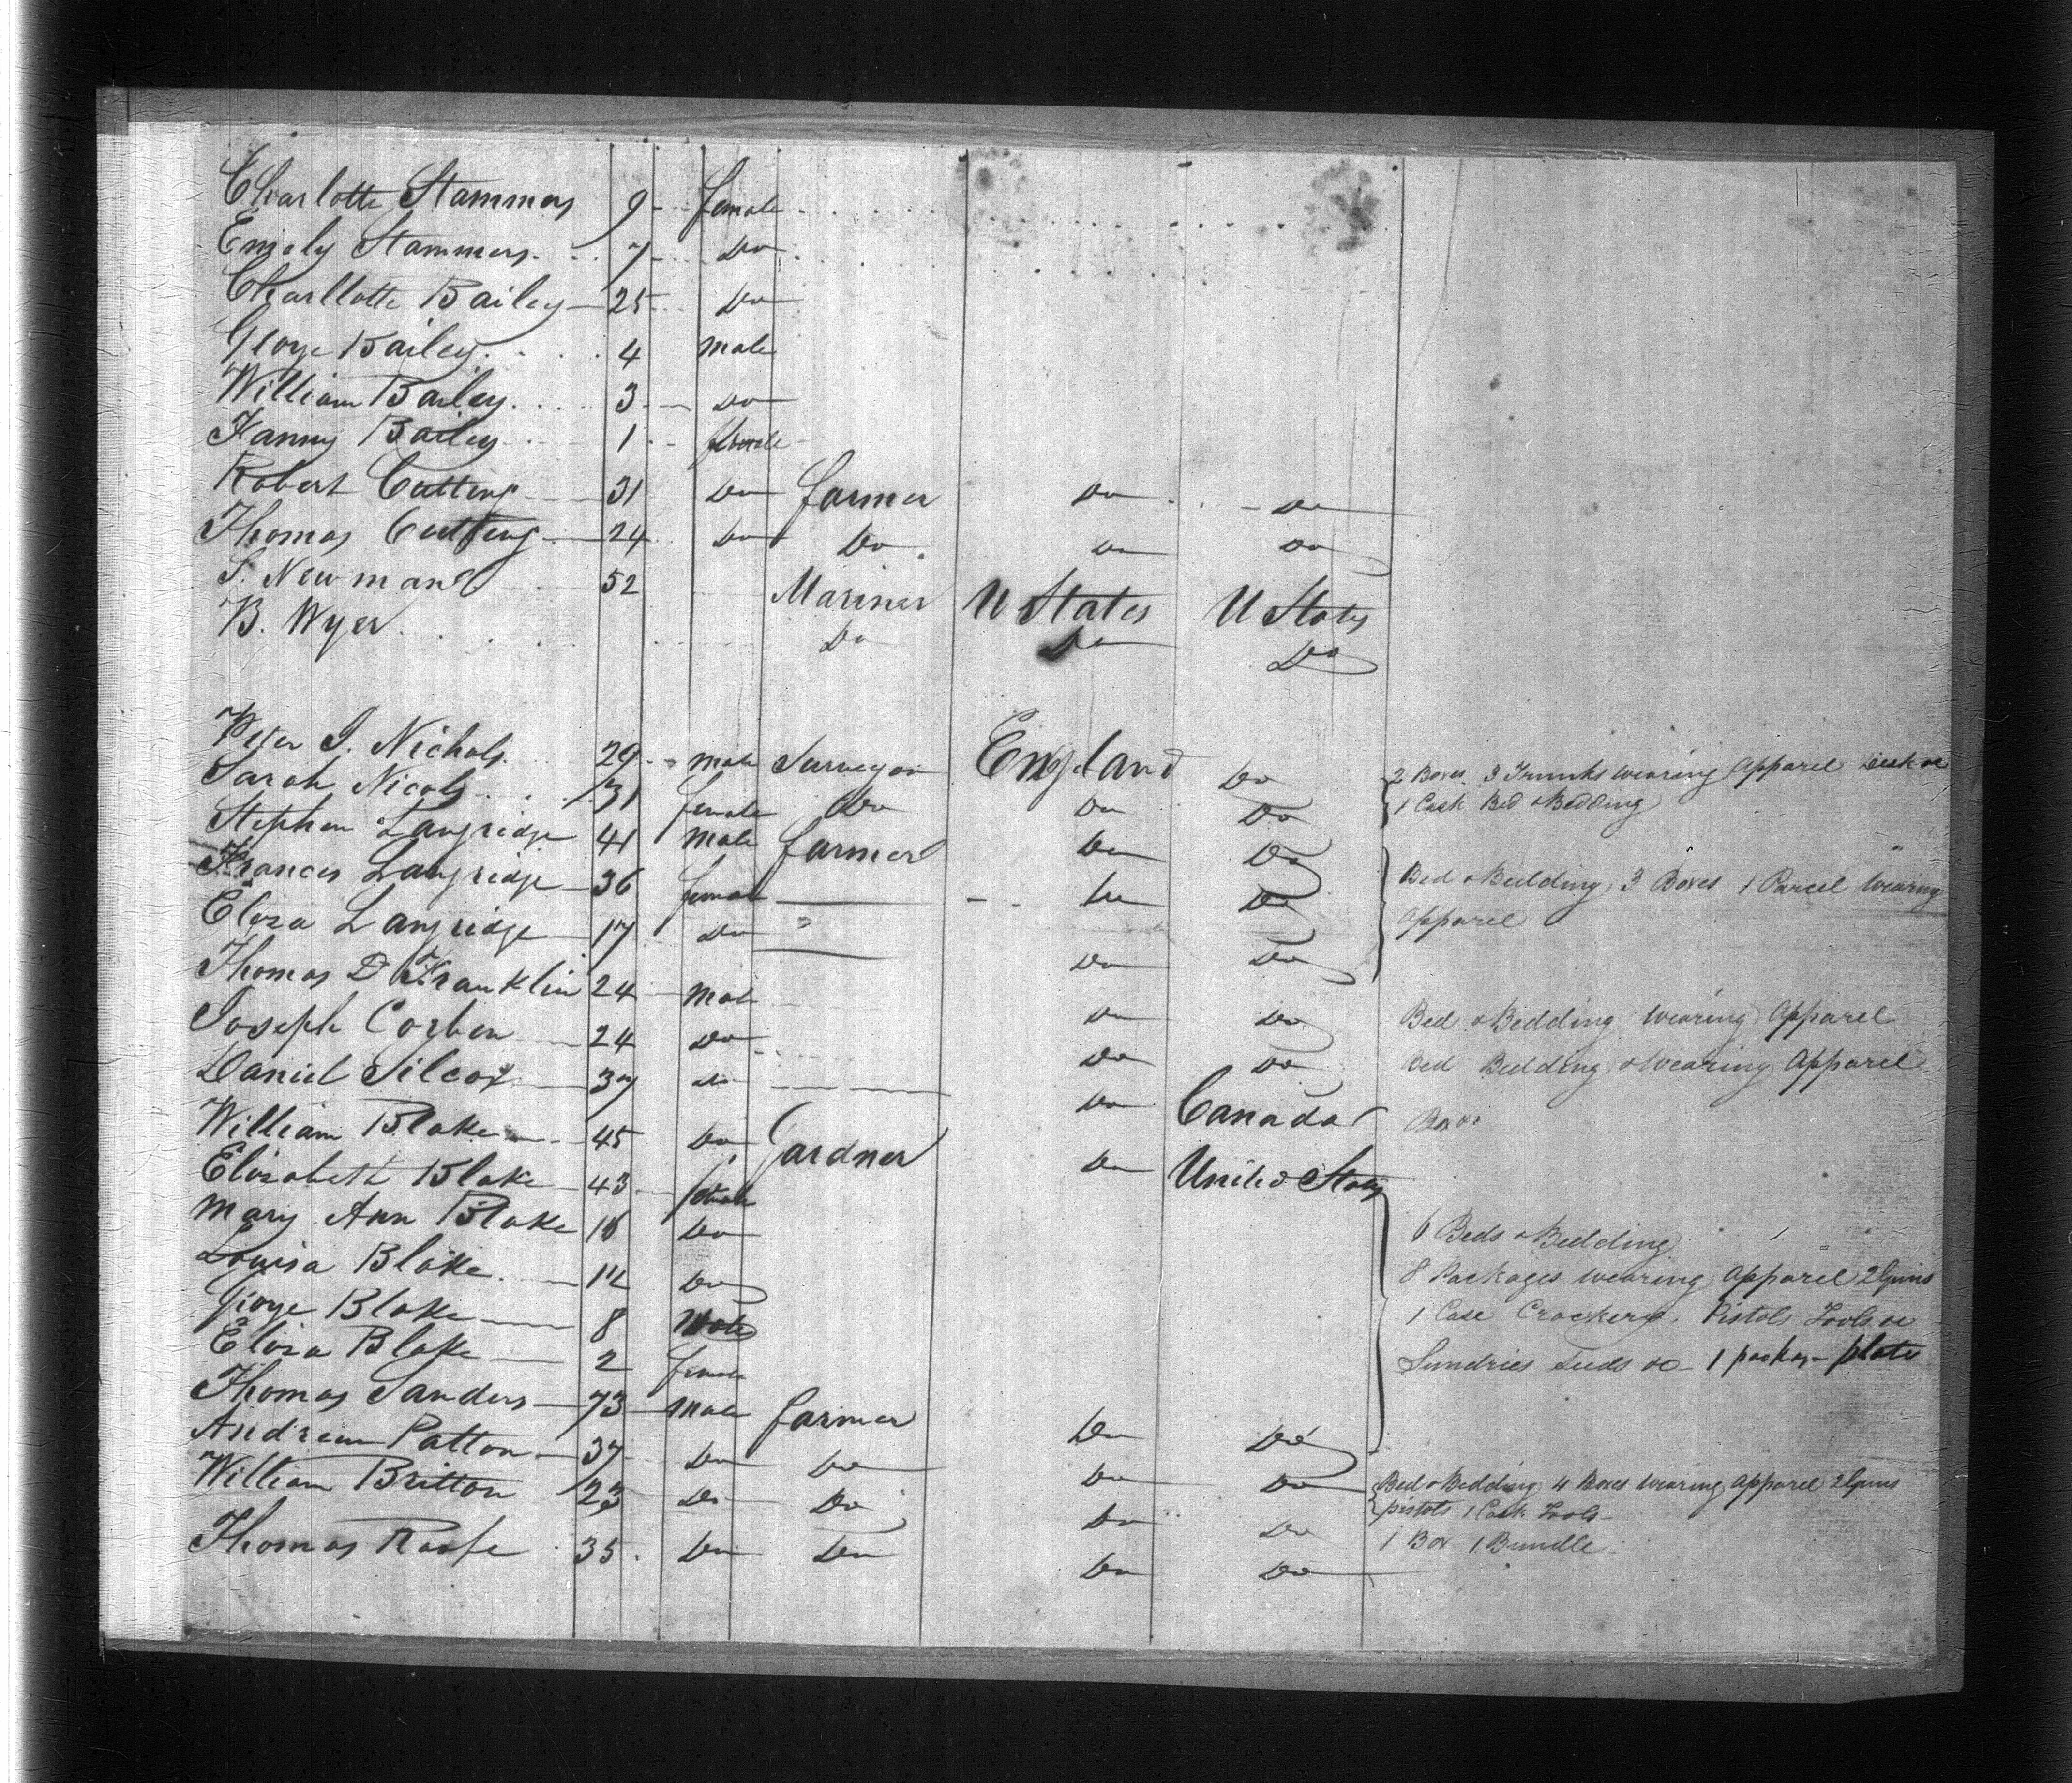 Charlotte Stammers 9 female
Emely Stammers 7 Do
Charllotte Bailey 25 Do
George Bailey 4 male
William Bailey 3 Do
Fanny Bailey 1 female
Robert Cutting 31 Do farmer Do Do
Thomas Cutting 24 Do Do Do Do
S. Newman 52 Mariner U States U States
B. Wyer Do Do Do
Peter I. Nichols 29 male Surveyor England Do 2 Boxes 3 Trunks wearing Apparel Desk &c
Sarah Nicols 31 female Do Do Do 1 Cask Bed & Bedding
Stephen Langridge 41 male farmer Do Do
Frances Langridge 36 female Do Do Bed & Bedding 3 Boxes 1 Parcel Wearing
Eliza Langridge 17 Do Do Do Apparel
Thomas D Franklin 24 male Do Do Bed & Bedding Wearing Apparel
Joseph Corben 24 Do Do Do Bed Bedding & Wearing Apparel
Daniel Silcox 37 Do Do Canada Box
William Blake 45 Do Gardner Do United States
Elizabeth Blake 43 female
Mary Ann Blake 16 Do 6 Beds & Bedding
Louisa Blake 14 Do 8 Packages wearing Apparel 2 Guns
George Blake 8 Male 1 Case Crockery Pistols Tools &c
Eliza Blake 2 female Sundries Seeds &c 1 package plate
Thomas Sanders 73 male farmer Do Do
Andrew Patton 37 Do Do Do Do Bed & Bedding 4 Boxes Wearing Apparel 2 Guns
William Britton 23 Do Do Do Do pistols 1 Cask Tools
Thomas Roofe 35 Do Do Do Do 1 Box 1 Bundle